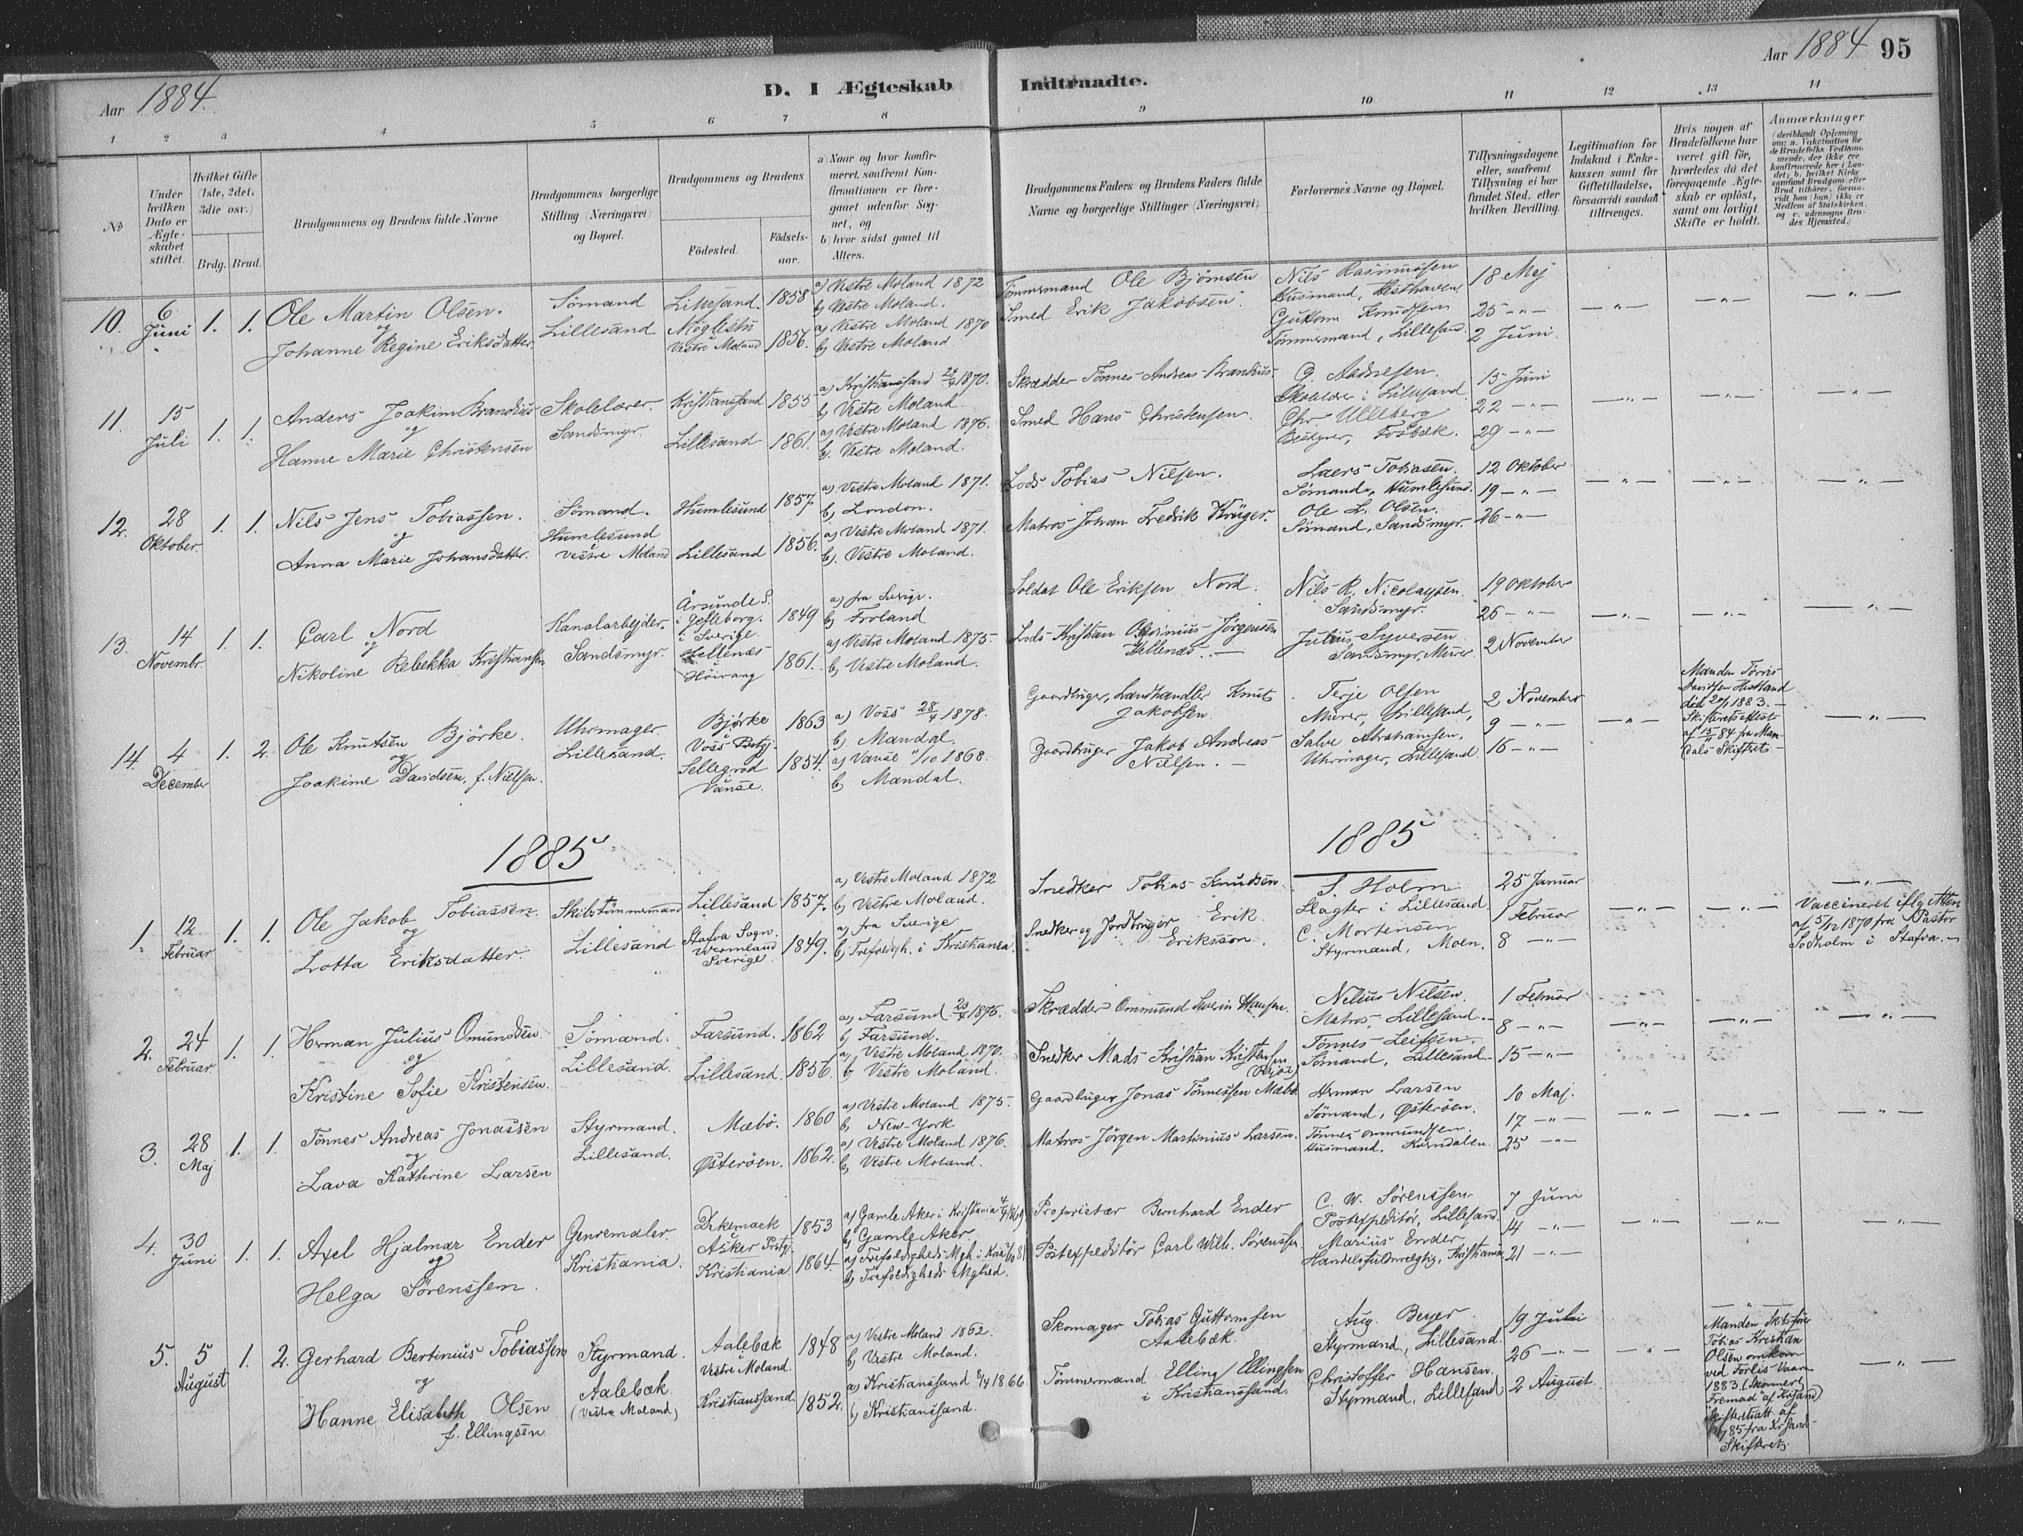 Aar 1884.
D. I Ægteskab Indtraadte.
Aar 1884 95
1 2 3 4 5 6 7 8 9 10 11 12 13 14
No
Under hvilken Dato er Ægteskabet stiftet.
Hvilket Gifte (1ste, 2det, 3die osv.)
Brdg. Brud.
Brudgommens og Brudens fulde Navne
Brudgommens borgerlige Stilling (Næringsvei) og Bopæl.
Brudgommens og Brudens
Födested.
Födselsaar.
a) Naar og hvor konfirmeret, saafremt Konfirmationen er foregaaet udenfor Sognet, og
b) hvor sidst gaaet til Alters.
Brudgommens Faders og Brudens Faders fulde Navne og borgerlige Stillinger (Næringsvei)
Forlovernes Navne og Bopæl.
Tillysningsdagene eller, saafremt Tillysning ei har fundet Sted, efter hvilken Bevilling.
Legitimation for Indskud i Enkekassen samt for Giftetilladelse, forsaavidt saadan tiltrænges.
Hvis nogen af Brudefolkene har været gift før, hvorledes da det foregaaende Ægteskab er opløst, samt om lovligt Skifte er holdt.
Anmærkninger
(deriblandt Oplysning om: a. Vakcination for de Brudefolks Vedkommende, der ikke ere konfirmerede her i Landet; b. hvilket Kirkesamfund Brudgom eller Brud tilhører, forsaavidt han (hun) ikke er Medlem af Statskirken, og c. udensogns Brudes Hjemsted.)
10. 6 Juni 1. 1.
Ole Martin Olsen.
og
Johanne Regine Eriksdatter.
Sömand
Lillesand
Lillesand 1858
Möglestu
Vestre Moland 1856.
a) Vestre Moland 1872
b) Vestre Moland.
a) Vestre Moland 1870
b) Vestre Moland.
Tömmermand Ole Björnsen
Smed Erik Jakobsen.
Nils Rasmussen
Husmand, Vesthaven
Guttorm Knudsen
Tömmermand, Lillesand.
18 Maj
25 - " -
2 Juni.
11. 15 Juli 1. 1.
Anders Joakim Brandius
og
Hanne Marie Christensen
Skolelærer.
Sandsmyr.
Kristianssand 1855
Lillesand 1861.
b) Vestre Moland.
a) Vestre Moland 1876.
b. Vestre Moland.
Skrædder Tönnes Andreas Brandius
Smed Hans Christensen.
G. Aadnesen.
Skolelærer i Lillesand
Chr. Ulleberg
Bestyrer, Fosbæk.
15 Juni
22 - " -
29 - " -
12. 28 Oktober. 1. 1.
Nils Jens Tobiassen.
og
Anna Marie Johansdatter.
Sömand.
Humlesund
Vestre Moland
Humlesund 1857.
Lillesand 1856.
a) Vestre Moland 1871.
b) London.
a) Vestre Moland 1871.
b) Vestre Moland.
Lods Tobias Nilsen.
Matros Johan Fredrik Krüger.
Laers Tobiasen.
Sömand, Humlesund.
Ole L. Olsen.
Sömand, Sandsmyr.
12 Oktober
19 - " -
26 - " -
13. 14 Novembr. 1. 1.
Carl Nord
og
Nikoline Rebekka Kristiansen
Kanalarbejder.
Sandsmyr.
Årsunde S.
i Gefleborg.
i Sverige. 1849
Høivaag 1861.
a) fra Sverige.
b) Froland
a) Vestre Moland 1875
b) Vestre Moland.
Soldat Ole Eriksen Nord.
Lods Kristian Jörgensen
Nils R. Nicolaysen
Sandsmyr.
Julius Syversen
Sandsmyr, Murer
19 Oktober
26 - " -
2 November
14. 4 December 1. 2.
Ole Knutsen Björke.
og
Joakime Davidsen, f. Nielsen.
Uhrmager.
Lillesand.
Bjørke
Voss Pstgj. 1863
Sellegrod
Vanse. 1854.
a) Voss 28/4 1878.
b) Mandal.
a) Vanse 11/10 1868.
b) Mandal.
Gaardbruger, Landhandler Knut Jakobsen.
Gaardbruger Jakob Andreas Nielsen.
Terje Olsen
Murer, Lillesand,
Salve Abrahamsen,
Uhrmager, Lillesand
2 November
9 - " -
16 - " -
Manden Tørris
Davidsen
død 1883.
Skifteretsattest
84 fra Mandals Skifteret.
1885 1885
1. 12 Februar 1. 1.
Ole Jakob Tobiassen.
og
Lotta Eriksdatter.
Skibstömmermand
Lillesand
Lillesand 1857.
Stafva Sogn.
Wermland
Sverige 1849.
a) Vestre Moland 1872
b) Vestre Moland.
a) fra Sverige
b) Trefoldigh. i Kristiania.
Snedker Tobias Knudsen.
Snedker og Jordbruger Erik Eriksson.
S. Holm
Slagter i Lillesand
C. Mortensen
Styrmand, Moen.
25 Januar
1 Februar
8 - " -
Vaccineret iflg Attest
af 5/12 1870 fra Pastor
Södholm i Stafva.
2. 24 Februar 1. 1.
Herman Julius Omundsen
og
Kristine Sofie Kristensen.
Sömand.
Lillesand.
Farsund. 1862
Lillesand. 1856.
b) Farsund.
a) Vestre Moland 1870.
b) Vestre Moland.
Skrædder Ommund Svein Hansen.
Snedker Mads Kristian Kristensen
Nelius Nilsen.
Matros, Lillesand.
Tönnes Leifsen,
Sömand, Lillesand.
1 Februar
8 - " -
15 - " -
3. 28 Maj 1. 1.
Tönnes Andreas Jonassen
og
Lava Kathrine Larsen
Styrmand.
Lillesand.
Mæbö. 1860
Österöen. 1862.
a) Vestre Moland 1875.
b. New-York
a) Vestre Moland 1876.
b) Vestre Moland.
Gaardbruger Jonas Tönnessen Mæbö
Matros Jörgen Martinius Larsen.
Herman Larsen
Sömand, Østeröen.
Tönnes Ommundsen.
Husmand,
10 Maj.
17 - " -
25 - " -
4. 30 Juni 1. 1.
Axel Hjalmar Ender
og
Helga Sörenssen.
Genremaler.
Kristiania.
Dikemark
Asker Pstgj. 1853
Kristiania 1864
b) Gamle Aker.
b) Trefoldigheds Mghed.
Proprietær Bernhard Ender
Postexpeditör Carl Wilh. Sörenssen
C. W. Sörenssen
Postexpeditör, Lillesand.
Marius Ender
Handelsfuldmægtig, Kristiania
7 Juni
14 - " -
21 - " -
5. 5 August 1. 2.
Gerhard Bertinius Tobiassen
og
Hanne Elisabeth Olsen
f. Ellingsen
Styrmand.
Aalebæk
(Vestre Moland)
Aalebæk
Vestre Moland. 1848
Kristianssand 1852.
a) Vestre Moland 1862.
b) Vestre Moland.
a) Kristianssand 1866.
b) Kristianssand.
Skomager Tobias Guttormsen
Aalebæk.
Tömmermand Elling Ellingsen
i Kristianssand.
Aug. Beyer
Styrmand, Lillesand.
Christoffer Hansen.
Styrmand, Lillesand
19 Juli
26 - " -
2 August.
Manden Skibsfører
Tobias Kristian
Olsen omkom
ved Forlis Vaaren
1883 (Skonnert
"Fremad" af Krsand)
Skifteretsatt. af
85 fra Krsands
Skifteret.